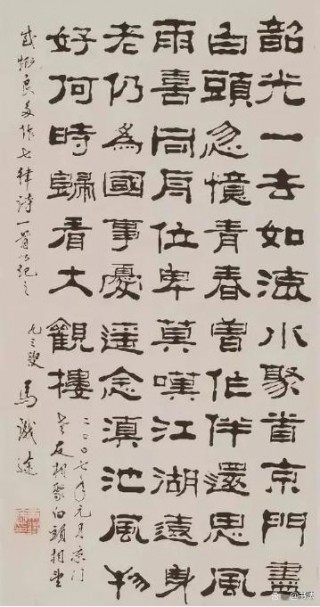 韶光一去如流水聚首京門盡
白頭忽憶青春曾作伴還思風
雨喜同舟位卑莫嘆江湖遠身
老仍為國事憂遥念滇池風物
好何時歸看大觀樓
二〇〇七年元月京门
老友相聚白頭相對
感慨良多作七律詩一首以紀之
九三叟馬識途